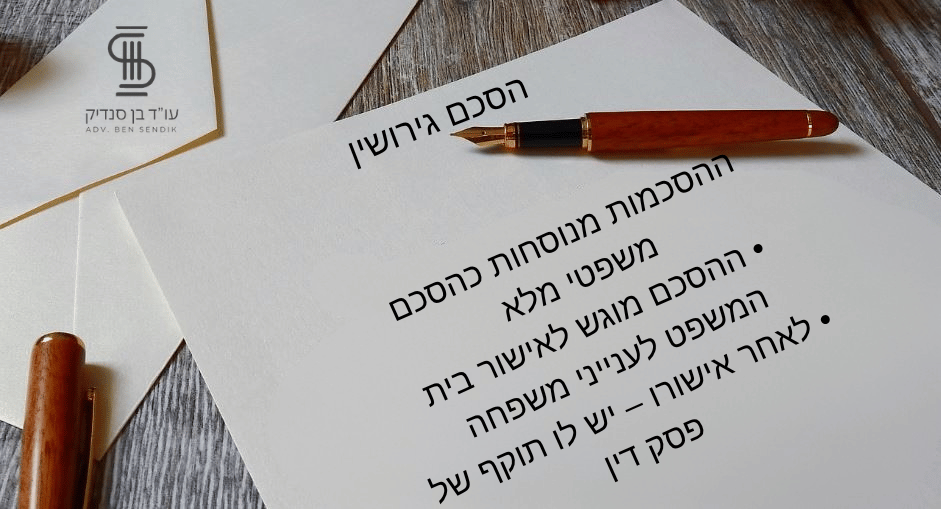 עו"ד בן סנדיק
ADV. BEN SENDIK
הסכם גירושין
ההסכמות מנוסחות כהסכם
משפטי מלא
• ההסכם מוגש לאישור בית
המשפט לענייני משפחה
• לאחר אישורו – יש לו תוקף של
פסק דין